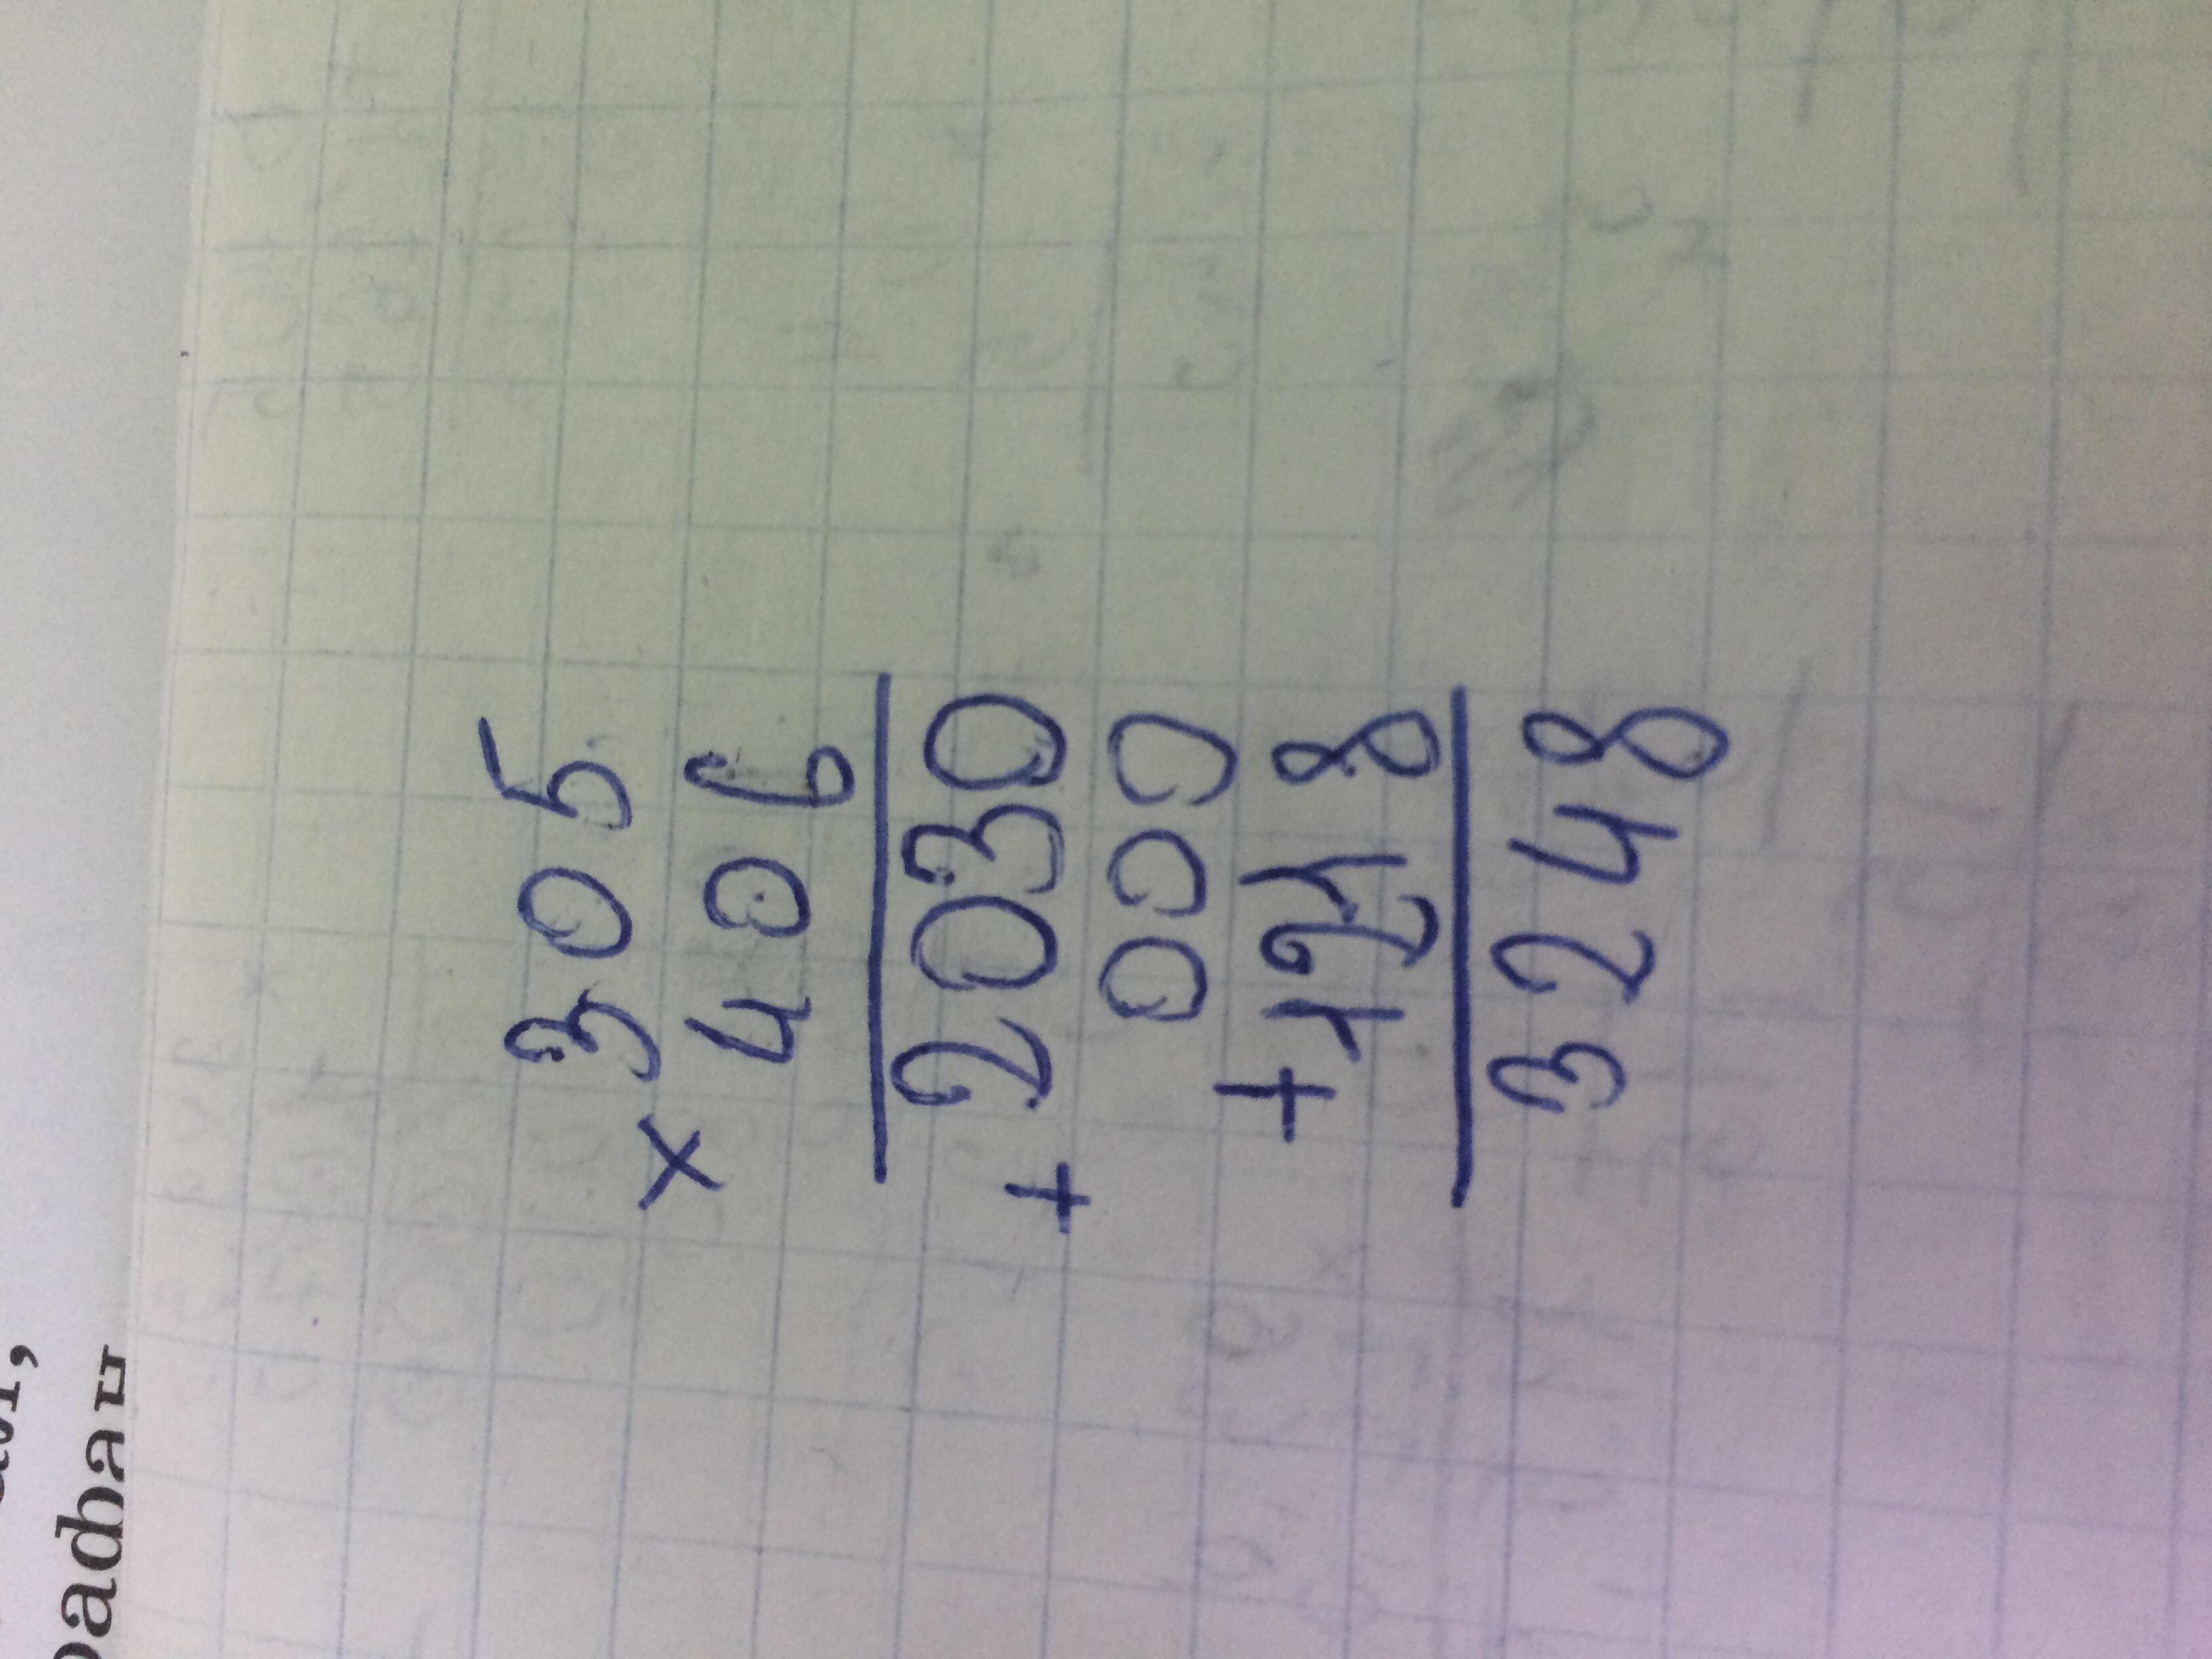 305
× 406
2030
+ 000
+ 1218
3248